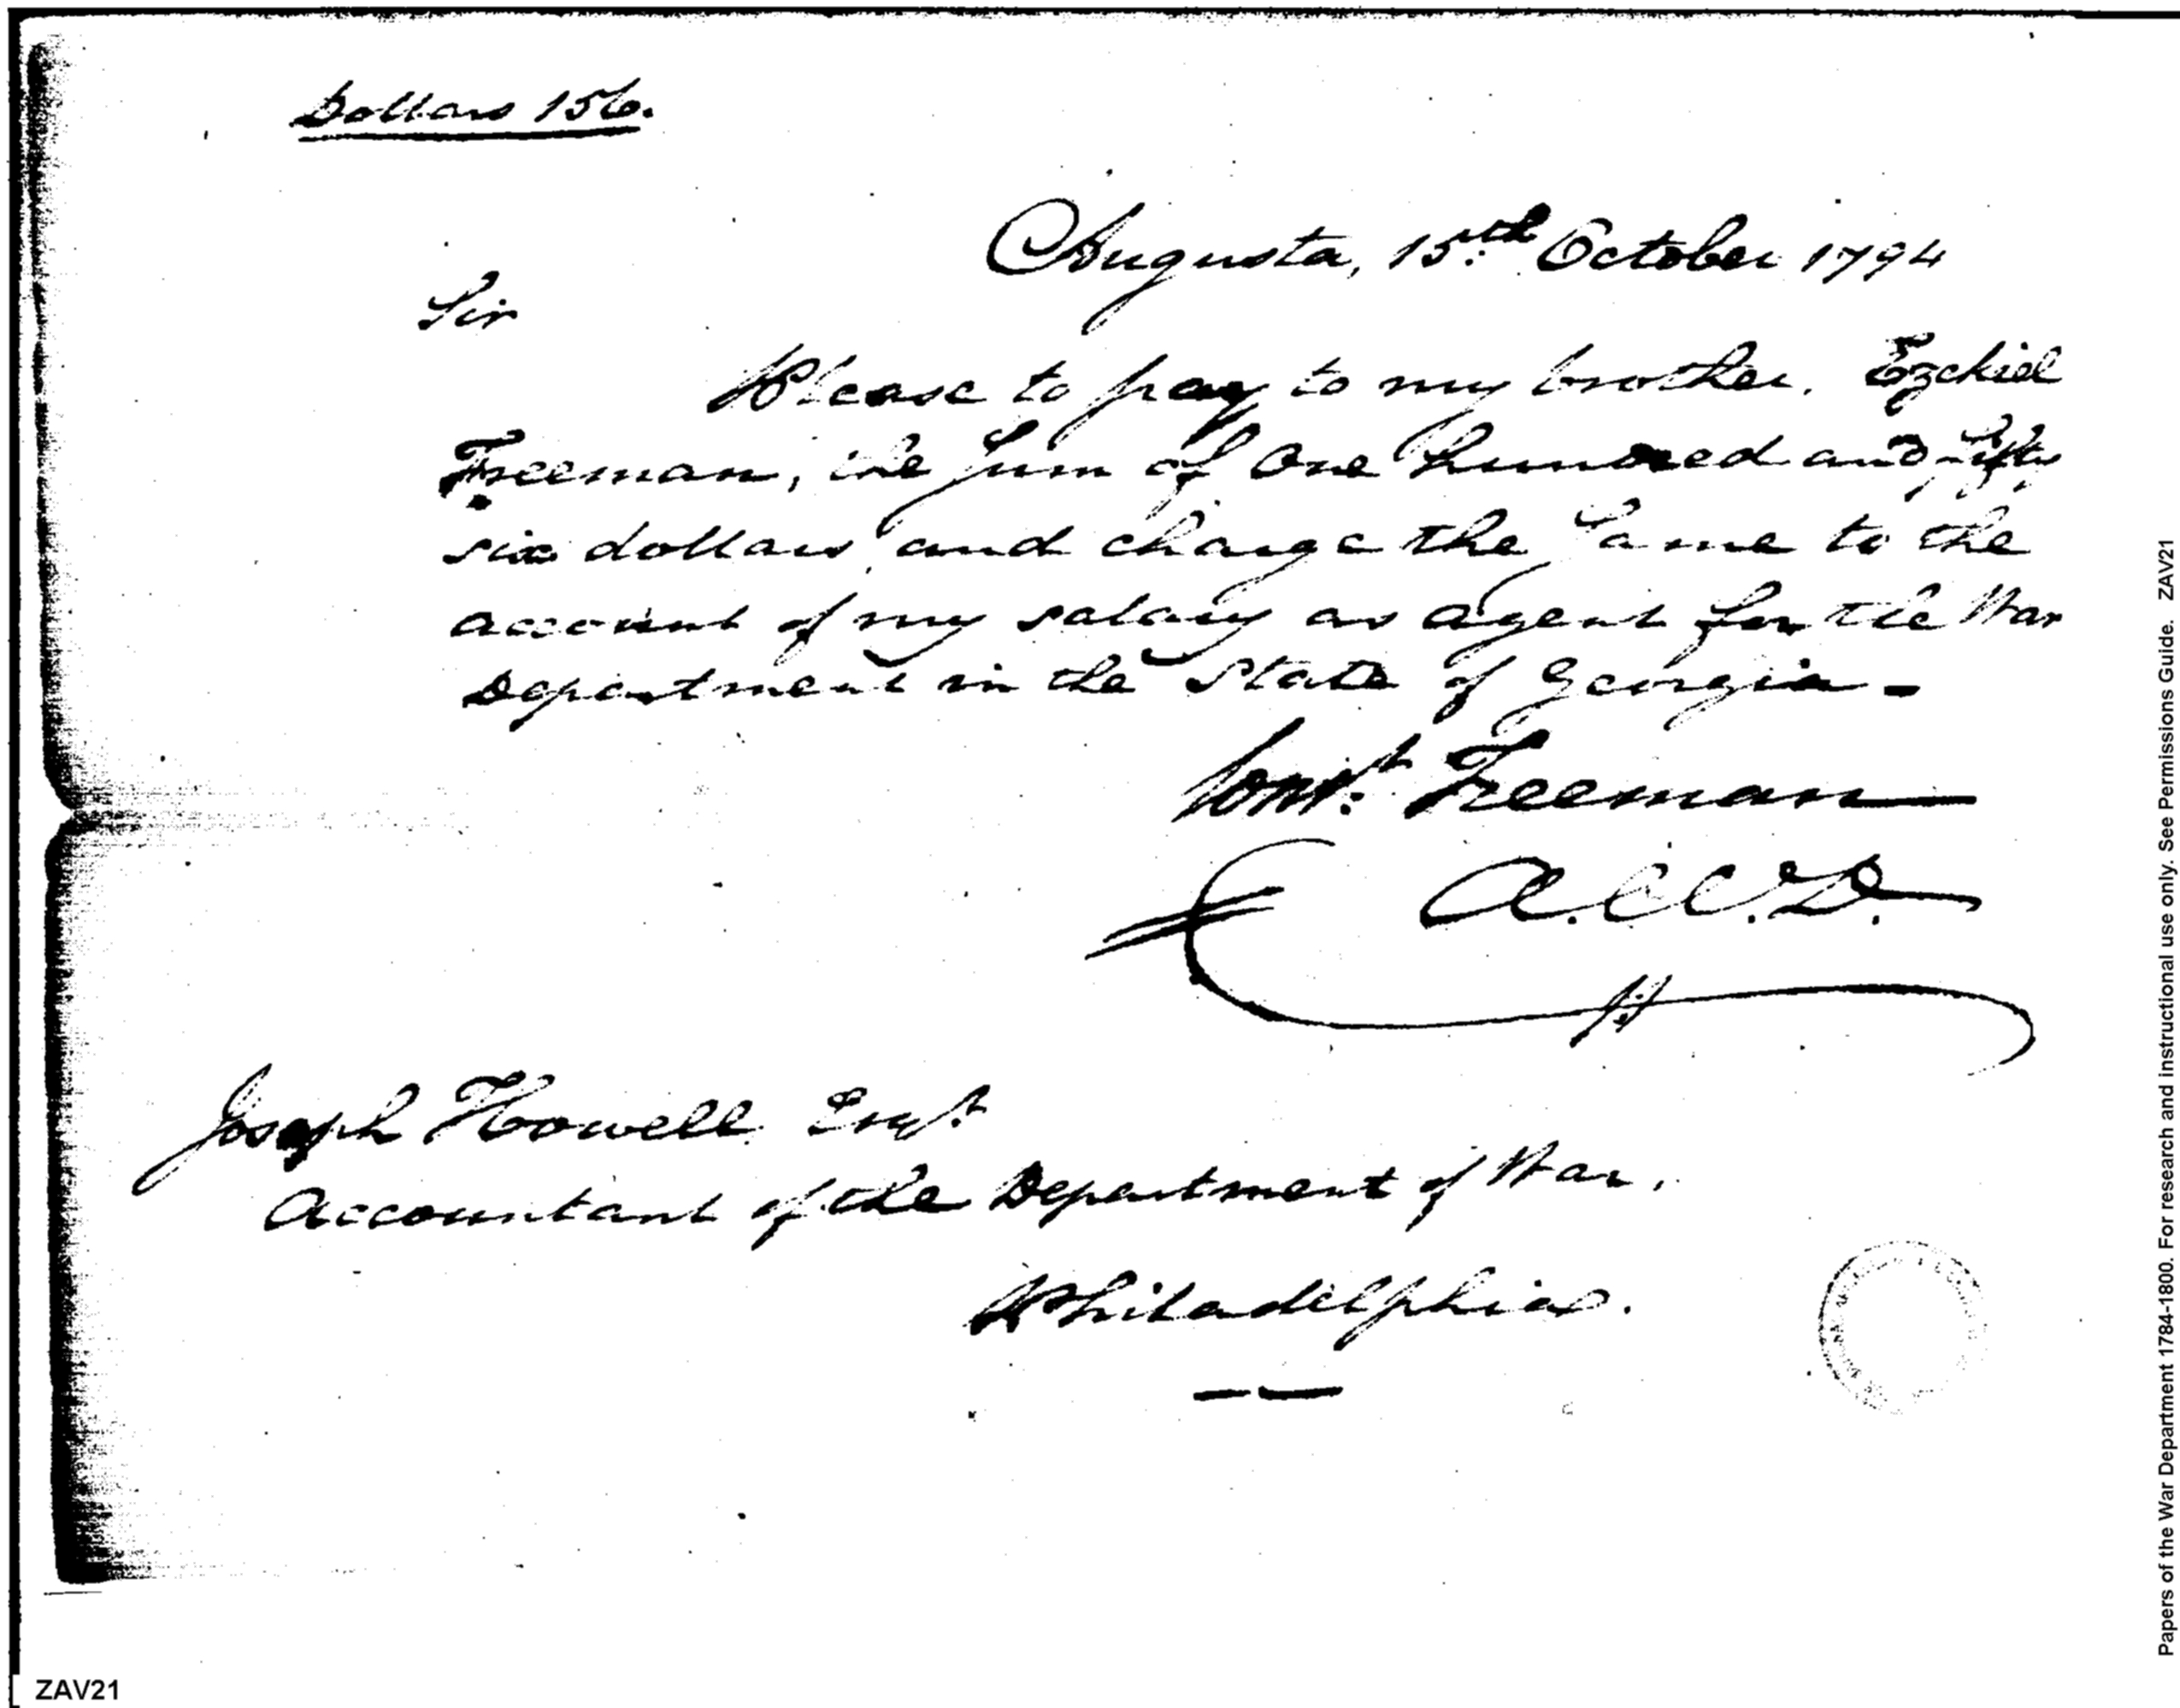 Dollars 156.
Augusta, 15th October 1794
Sir
Please to pay to my brother, Ezekiel
Freeman, the sum of One hundred and fifty
six dollars, and charge the same to the
account of my salary as agent for the War
Department in the State of Georgia -
Const. Freeman
A.W.D.
Joseph Howell Esqr.
Accountant of the Department of War,
Philadelphia.
Papers of the War Department 1784-1800. For research and instructional use only. See Permissions Guide. ZAV21
ZAV21